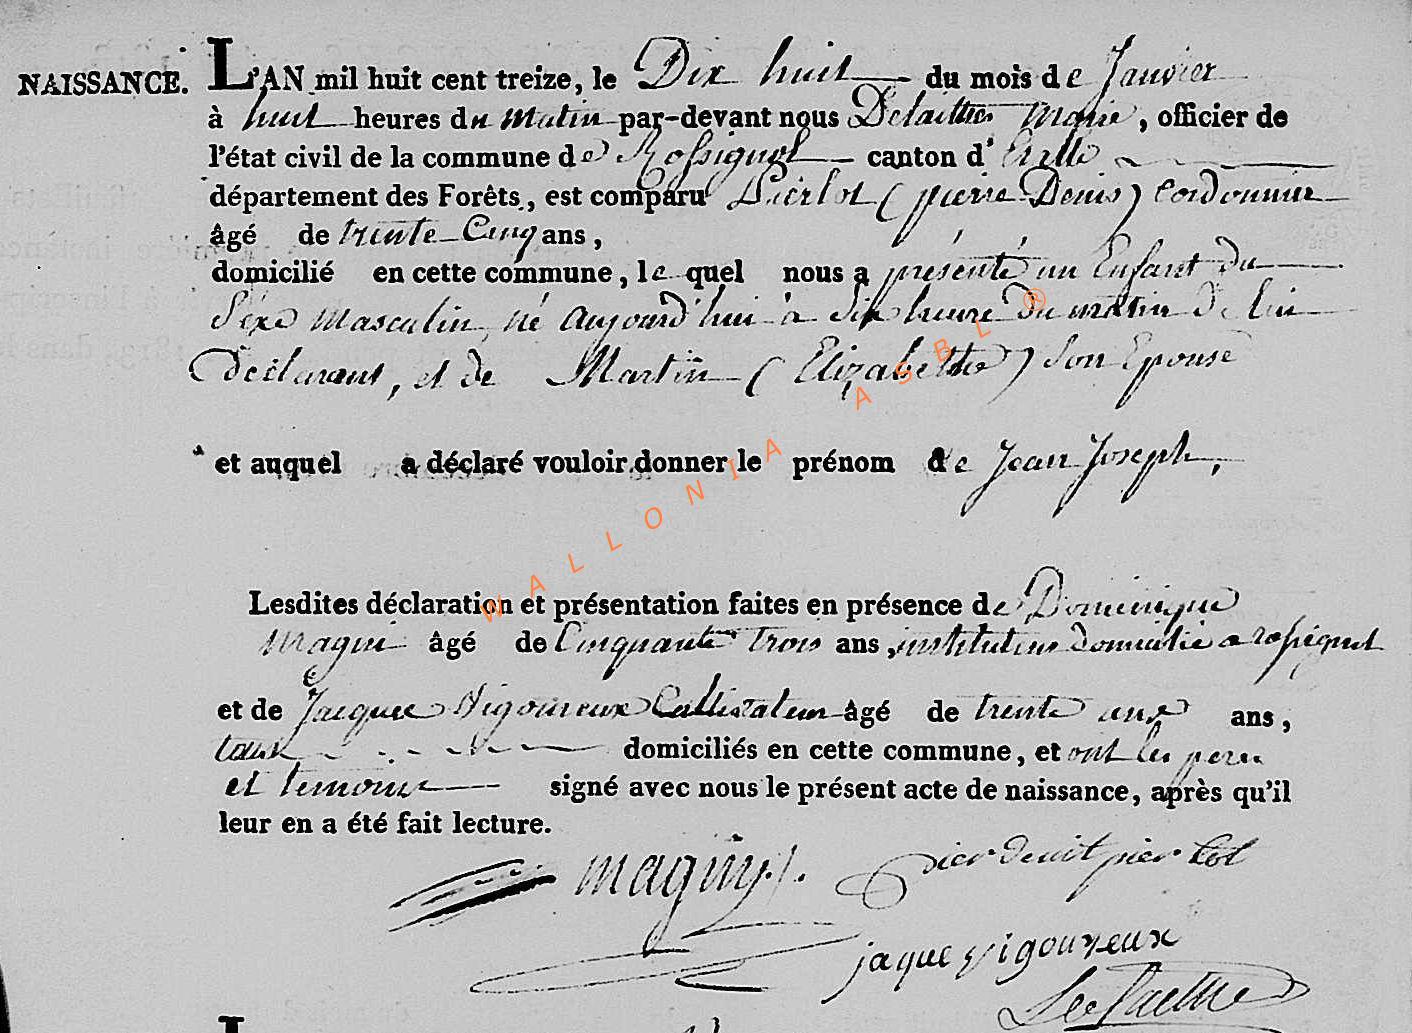 NAISSANCE. L'AN mil huit cent treize, le Dix huit du mois de Janvier
à huit heures du matin par-devant nous Delaittres maire, officier de
l'état civil de la commune de Rossignol canton d'
département des Forêts, est comparu Pierlot (pierre Denis) Cordonnier
âgé de trente Cinq ans,
domicilié en cette commune, le quel nous a présenté un Enfant du
Sexe masculin, né aujourd'hui à heure du matin De lui
Déclarant, et de Martin (Elizabethe) Son Epouse
et auquel a déclaré vouloir donner le prénom de Jean Joseph,
Lesdites déclaration et présentation faites en présence de Dominique
magui âgé de Cinquante trois ans, instituteur domicilié a rossignol
et de Jacque Vigoureux Cultivateur âgé de trente ans,
tous domiciliés en cette commune, et ont les pere
et temoins signé avec nous le présent acte de naissance, après qu'il
leur en a été fait lecture.
pier denit pier lot
jaque vigoureux
WALLONIA ASBL ®